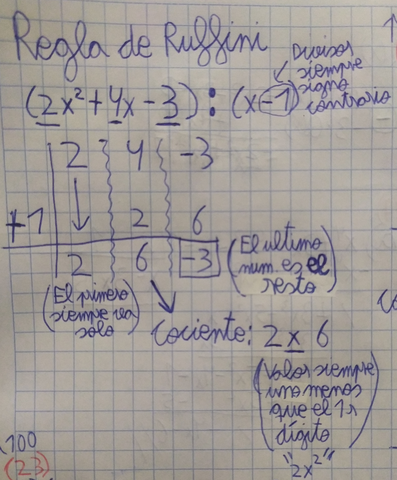 Regla de Ruffini
(2x² + 4x - 3) : (x - 1)
Divisor
siempre
signo
contrario
2 4 -3
+1 2 6
2 6 -3
(El ultimo
num. es el
resto)
(El primero
siempre va
solo)
Cociente: 2x 6
(Valor siempre
uno menos
que el 1r
dígito
"2x²"
100
(23)